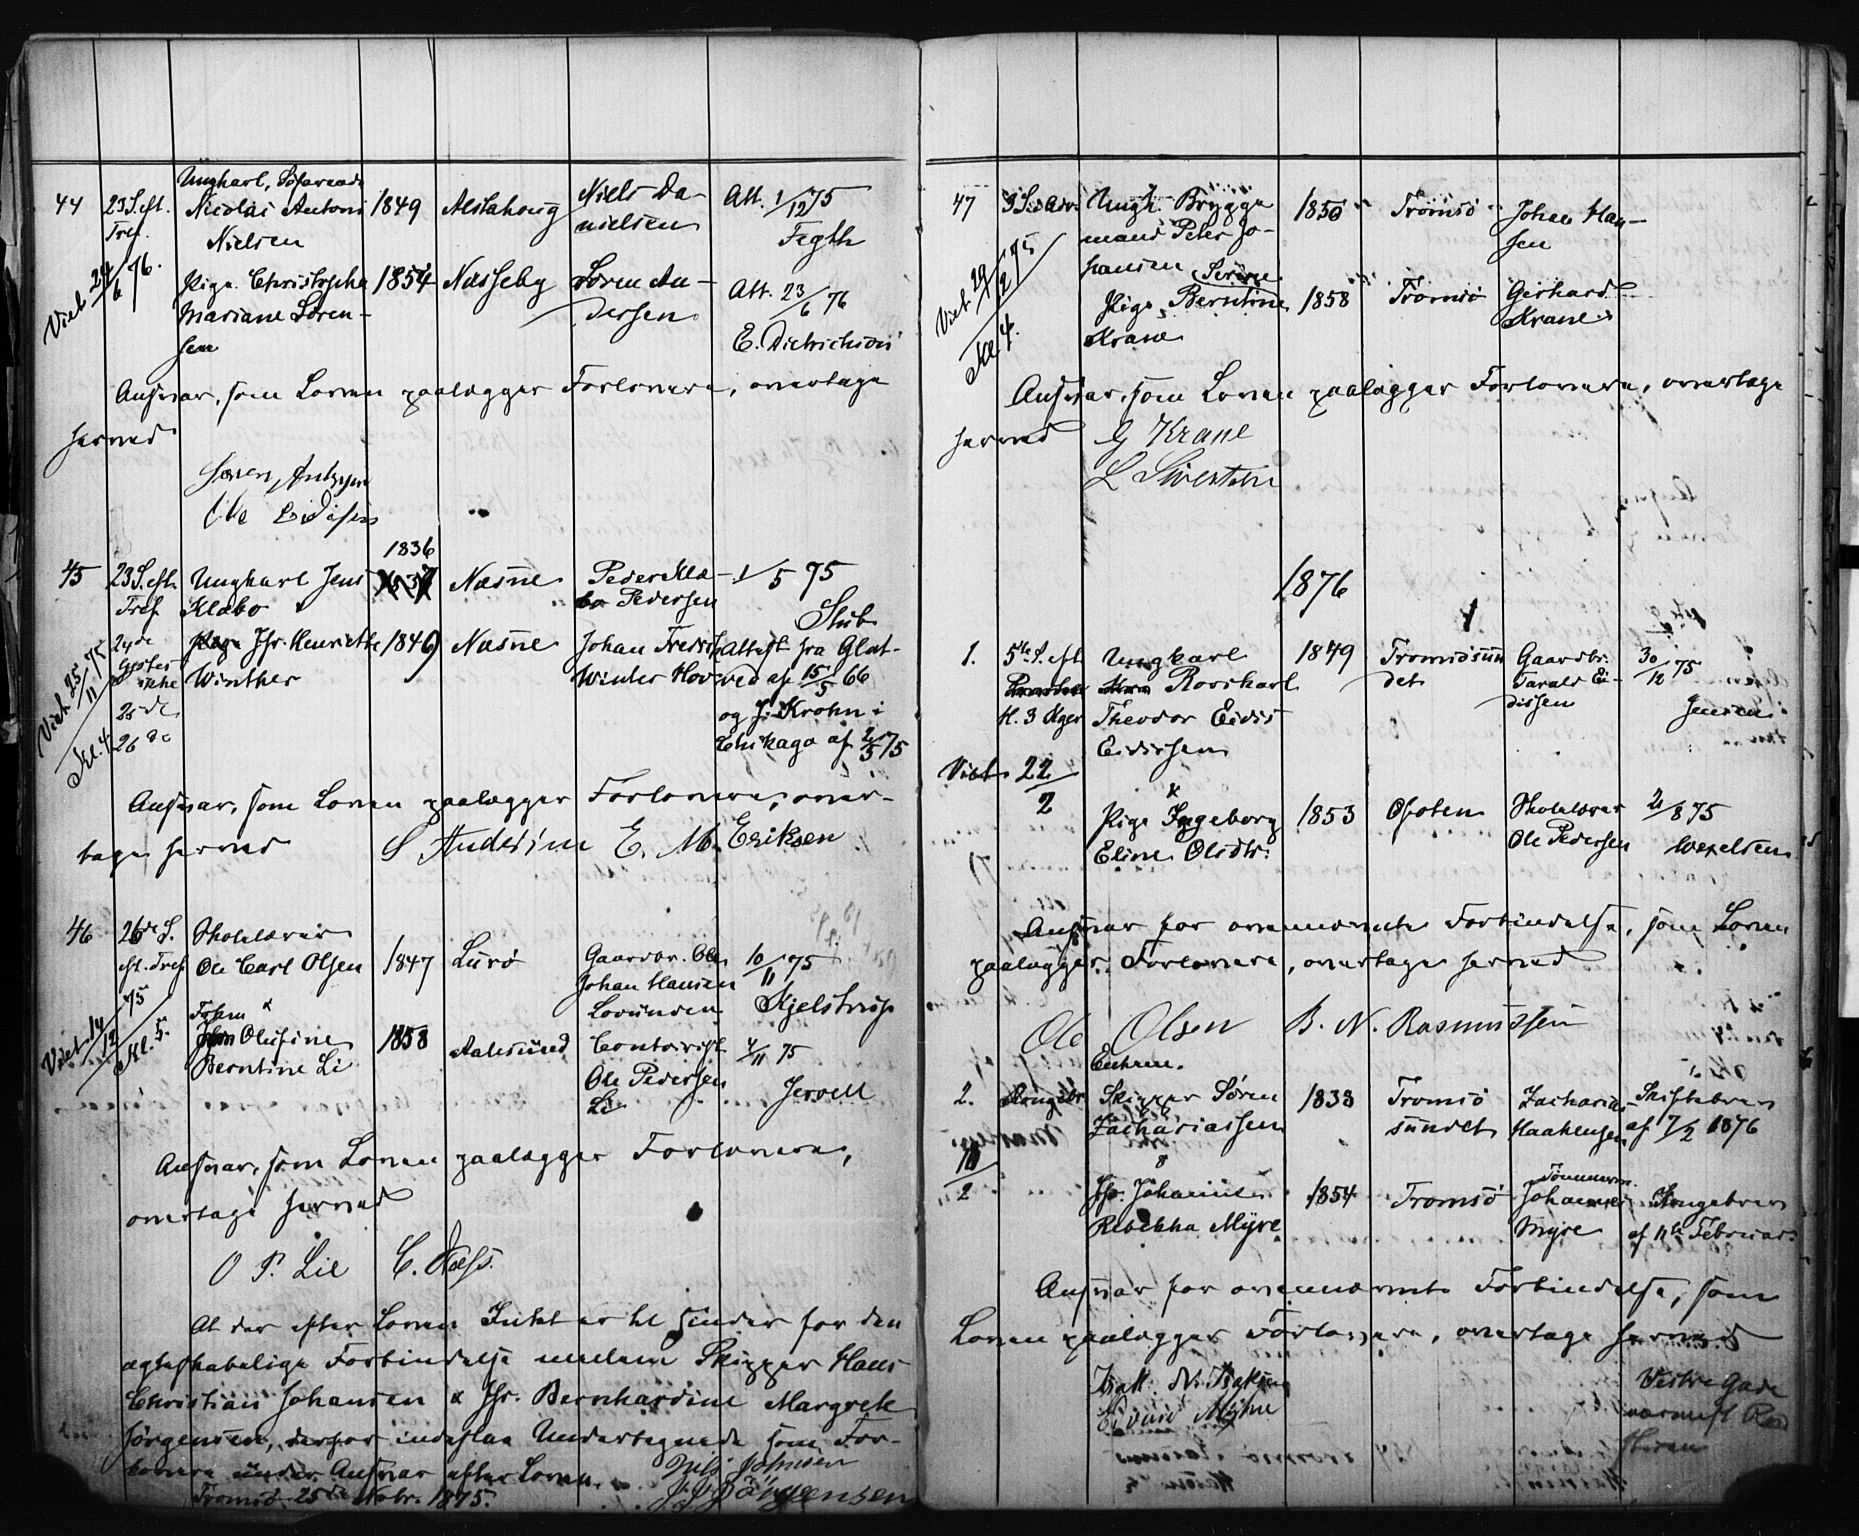 44 23 S. eft. Tref.
Ungkarl, Söfarende
Nicolai Antoni
Nielsen
1849 Alstahoug
Niels Da-
nielsen
Att. 1/12 75
Fegth
Viet 24/6 76.
Pige Christophe
Mariane Sören-
sen
1854 Næsseby
Sören An-
dersen
Att. 23/6 76
E. Dietrichson
Ansvar, som Loven paalægger Forlovere, overtage
herved
Sören Andersen
Ole Eidisen
45 23 S. eft.
Tref.
24de
25de
26de
Ungkarl Jens
Klæbo
1836
Næsne
Peder Klæ-
bo Pedersen
1/5 75
Stub
Viet 25/11 75
Kl. 4
Pige Jfr. Henriette
Winther
1846 Næsne
Johan Fredrik
Winter Hov
Attest fra Glat-
ved af 15/5 66
og J. Krohn i
Chikago af 2/5 75
Ansvar, som Loven paalægger Forlovere, over-
tages herved
S Andersen E. M. Eriksen
46 26de S.
eft. Tref.
Skolelærer
Ole Carl Olsen
1847 Lurö
Gaardbr. Ole
Johan Hansen
Lovunden
10/11 75
Kjelstrup
Viet 14/12 75
Kl. 5.
Olufine
Berntine Li
1858
Aalesund
Ole Pedersen
Li
4/11 75
Jervell
Ansvar, som Loven paalægger Forlovere,
overtage herved
O P. Lie C. Næss.
At der efter Loven Intet er til Hinder for den
ægteskabelige Forbindelse mellem Skipper Hans
Christian Johansen & Jfr. Bernhardine Margrete
Jörgensen, derfor indestaa Undertegnede som For-
lovere under Ansvar efter Loven.
Tromsö 25de Novbr. 1875.
Nils Johnsen
J. J. Jörgensen
47 3 S. i Adv.
Ungk. Brygge
mand Peter Jo-
hansen
1850 Tromsö
Johan Han-
sen
Viet 29/12 75
Kl. 4.
Pige Severine
Berntine
Krane
1858 Tromsö
Gerhard
Krane
Ansvar, som Loven paalægger Forlovere, overtage
herved
G Krane
L Sivertsen
1876
1. 5te S. eft.
H. 3 Kger
Ungkarl
Rorskarl
Theodor Eidis
Eidissen
1849 Tromsösun
det
Gaardbr.
Tarald Ei-
dissen
30/12 75
Jensen
Viet 22/2
Pige Ingeborg
Eline Olsdtr.
1853 Ofoten
Skolelærer
Ole Pedersen
2/8 75
Wexelsen
Ansvar for ovennævnte Forbindelse, som Loven
paalægger Forlovere, overtages herved
Ole Olsen B. N. Rasmussen
2. Kongebr.
Enkem.
Skipper Sören
Zachariassen
1833 Tromsö
sundet
Zacharias
Haakensen
Skiftebrev
af 7/2 1876
10/2
Jfr. Johanne
Rebekka Myre
1854 Tromsö
Tömmerm.
Johannes
Myre
Kongebrev
af 11te Februar.
Ansvar for ovennævnte Forbindelse, som
Loven paalægger Forlovere, overtage herved
Isak N. Isaksen
Vestregade